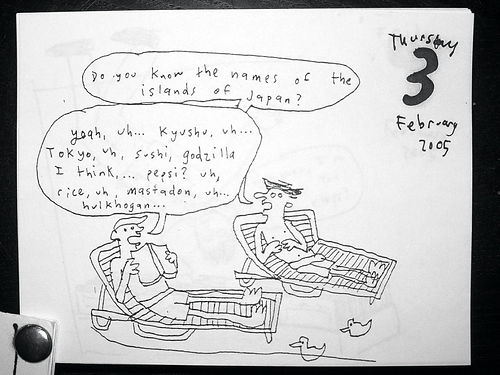 Thursday
3
February
2005
Do you know the names of the
islands of Japan?
yeah, uh... Kyushu, uh...
Tokyo, uh, sushi, godzilla
I think,... pepsi? uh,
rice, uh, mastadon, uh...
hulkhogan...